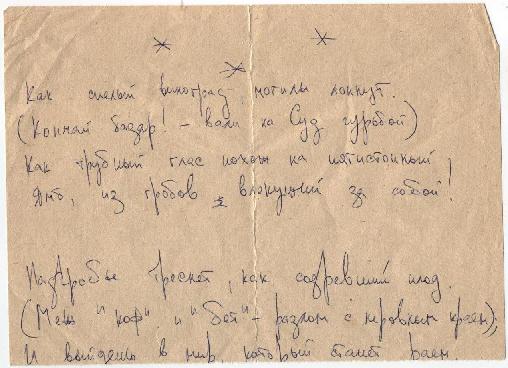 * * *
Как спелый виноград, могилы лопнут.
(Кончай базар! – вали на Суд гурьбой)
Как трубный глас похож на пятистопный
Ямб, из гробов влекущий за собой!
Надгробье треснет, как созревший плод.
(Меж "коф" и "бет" – разлом с неровным краем),
И выйдешь в мир, который станет раем.